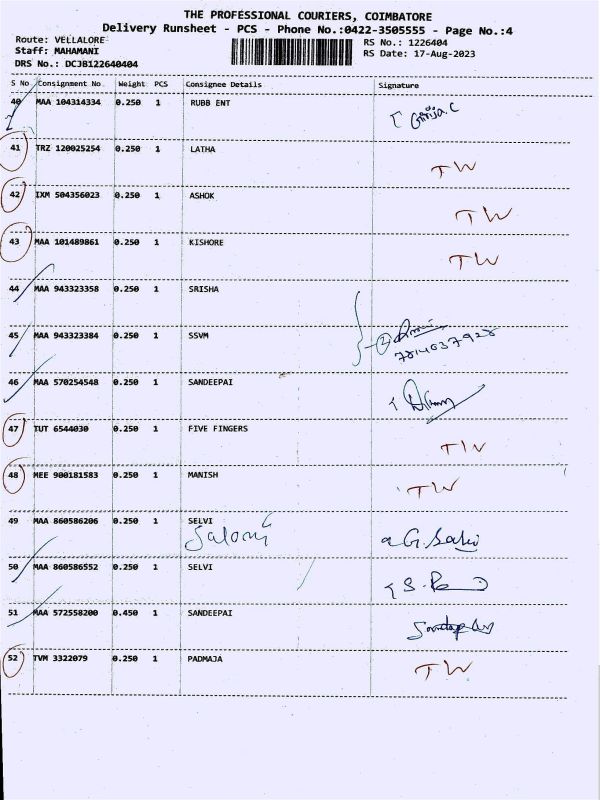 THE PROFESSIONAL COURIERS, COIMBATORE
Delivery Runsheet - PCS - Phone No.:0422-3505555 - Page No.:4
Route: VELLALORE
Staff: MAHAMANI
DRS No.: DCJB122640404
RS No.: 1226404
RS Date: 17-Aug-2023
S No Consignment No. Weight PCS Consignee Details Signature
40 MAA 104314334 0.250 1 RUBB ENT Girija.C
41 TRZ 120025254 0.250 1 LATHA TW
42 IXM 504356023 0.250 1 ASHOK TW
43 MAA 101489861 0.250 1 KISHORE TW
44 MAA 943323358 0.250 1 SRISHA
45 MAA 943323384 0.250 1 SSVM 2
46 MAA 570254548 0.250 1 SANDEEPAI
47 TUT 6544030 0.250 1 FIVE FINGERS TW
48 MEE 900181583 0.250 1 MANISH TW
49 MAA 860586206 0.250 1 SELVI
50 MAA 860586552 0.250 1 SELVI
51 MAA 572558200 0.450 1 SANDEEPAI
52 TVM 3322079 0.250 1 PADMAJA TW